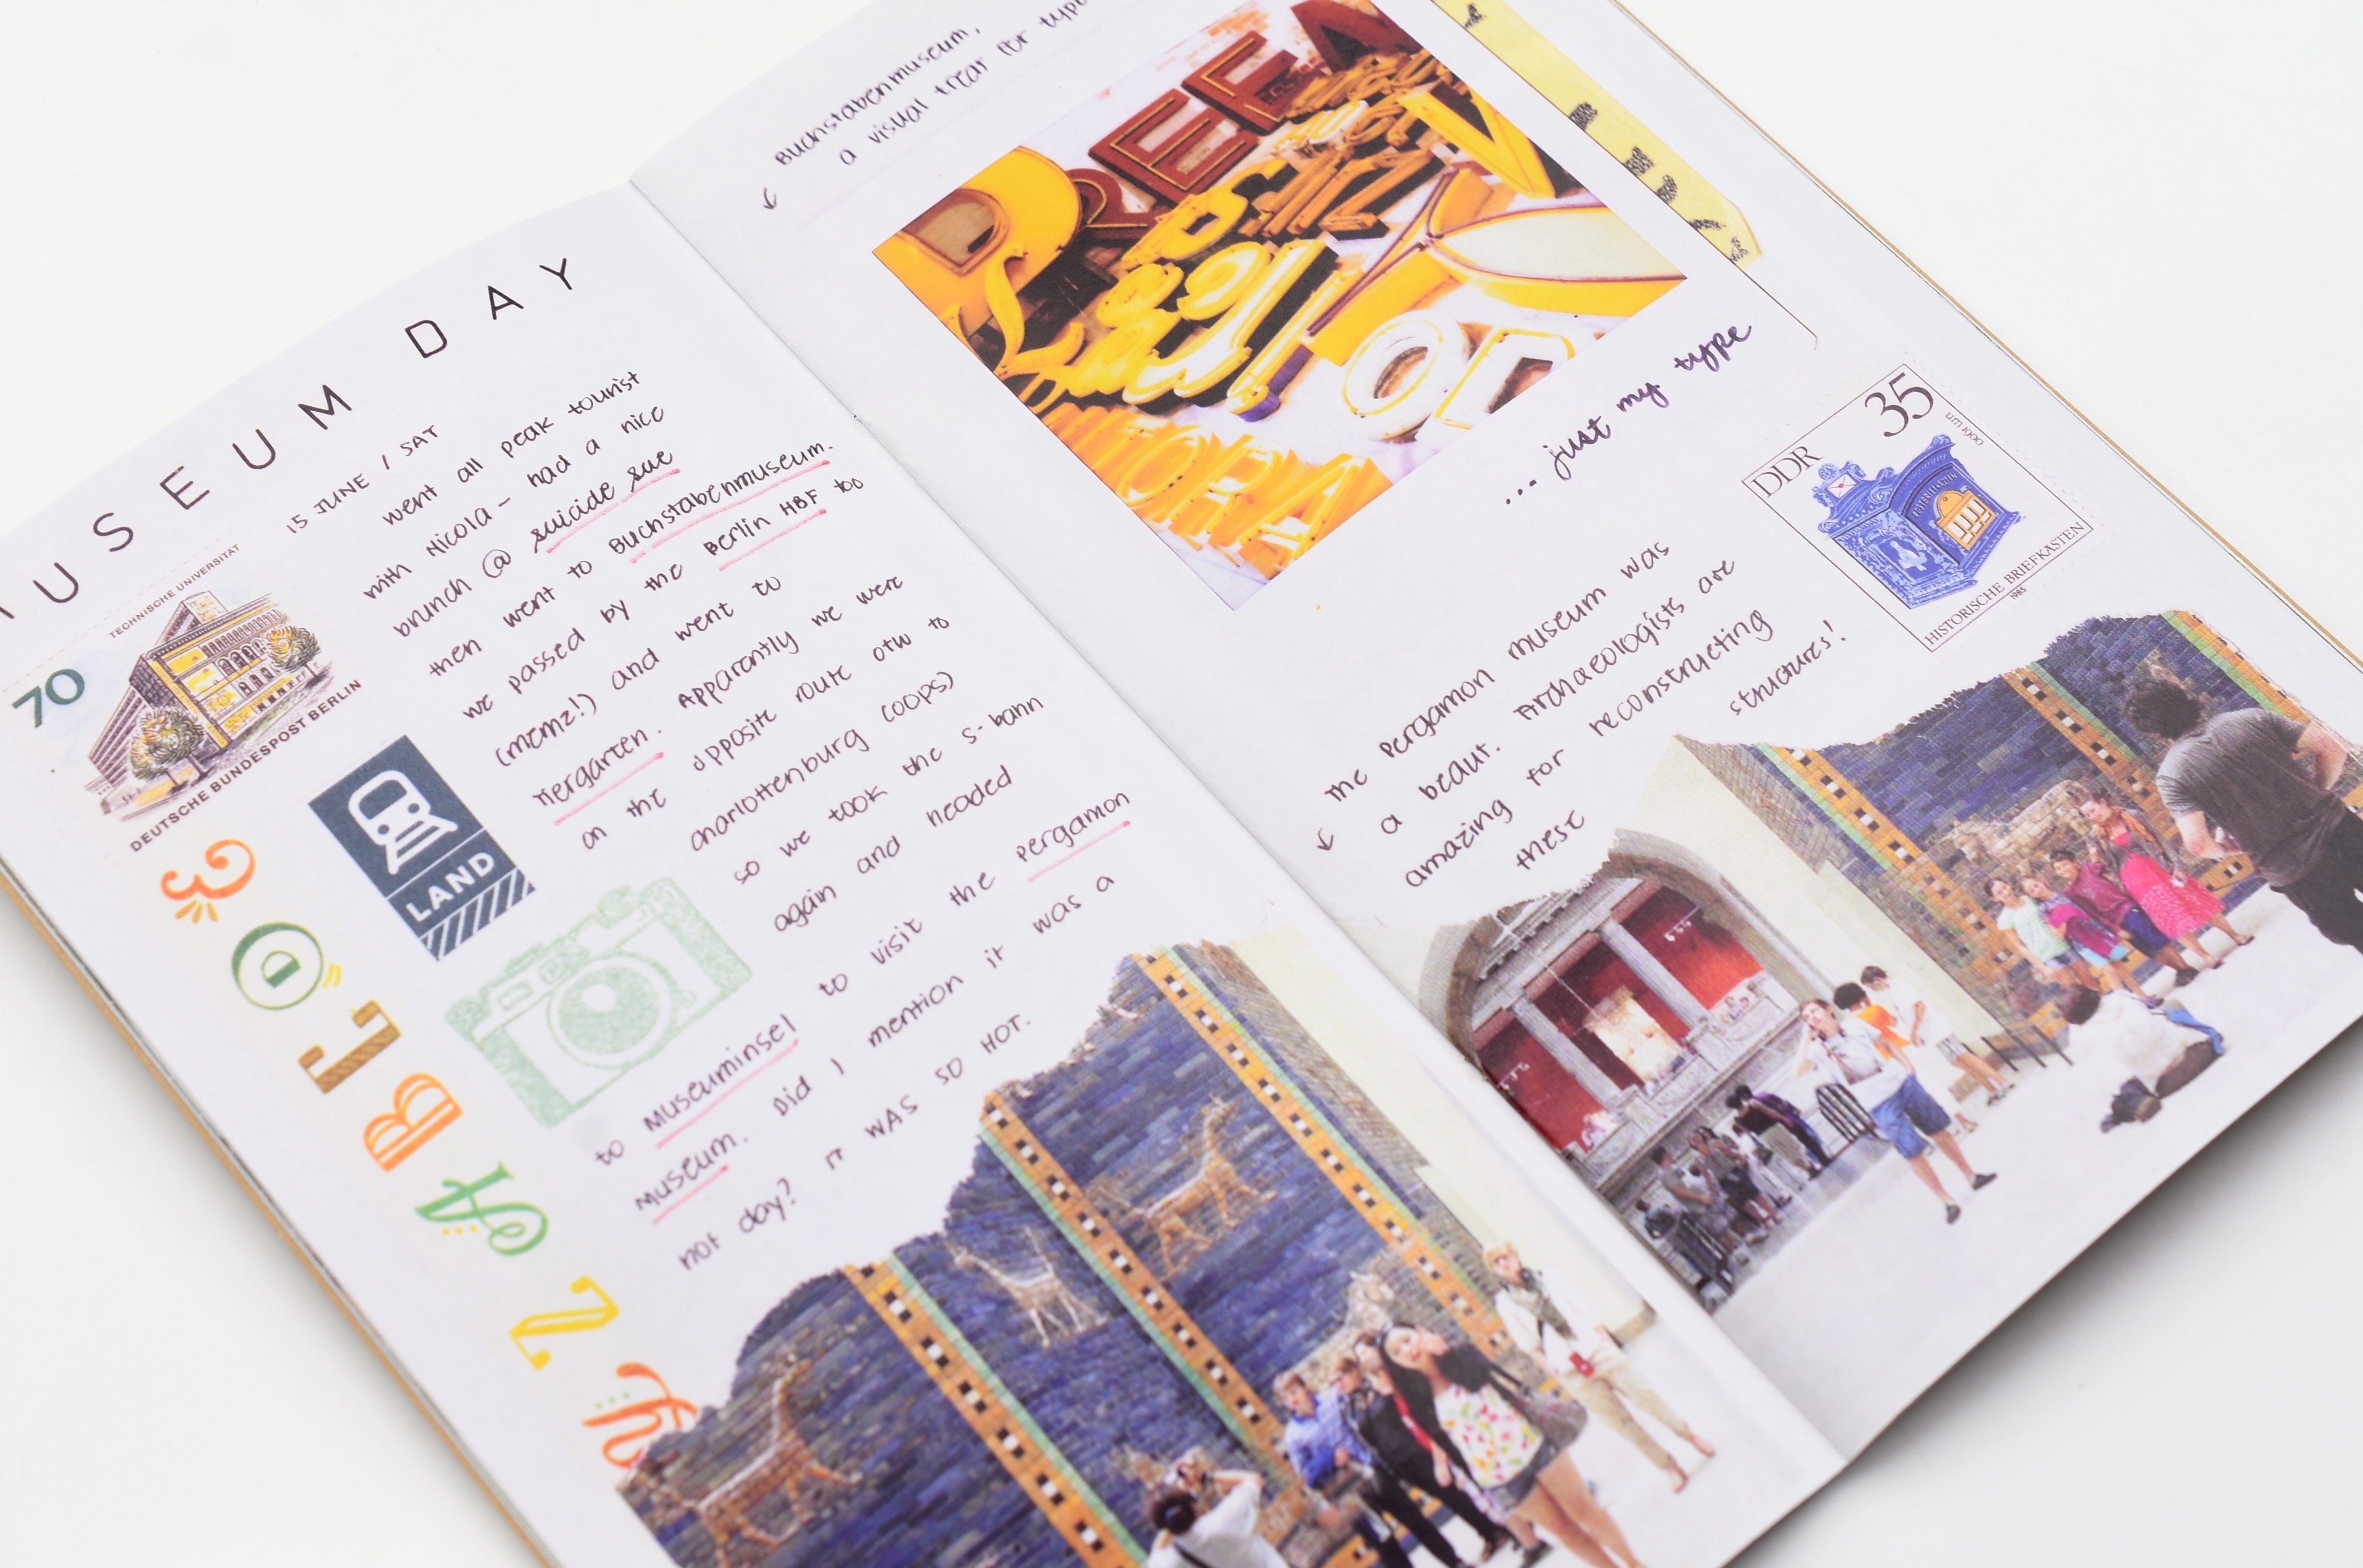 USEUM DAY
15 JUNE / SAT
went all peak tourist
with Nicola - had a nice
brunch @ suicide sue
then went to Buchstabenmuseum.
we passed by the Berlin HBF too
(memz!) and went to
Tiergarten. Apparently we were
on the opposite route otw to
charlottenburg (oops)
so we took the s-bahn
again and headed
to Museuminsel to visit the pergamon
museum. Did I mention it was a
hot day? IT WAS SO HOT.
70
TECHNISCHE UNIVERSITÄT
DEUTSCHE BUNDESPOST BERLIN
LAND
Buchstabenmuseum,
a visual treat for type
... just my type
DDR
35
um 1900
HISTORISCHE BRIEFKASTEN
1985
The Pergamon museum was
a beaut. Archaeologists are
amazing for reconstructing
these structures!